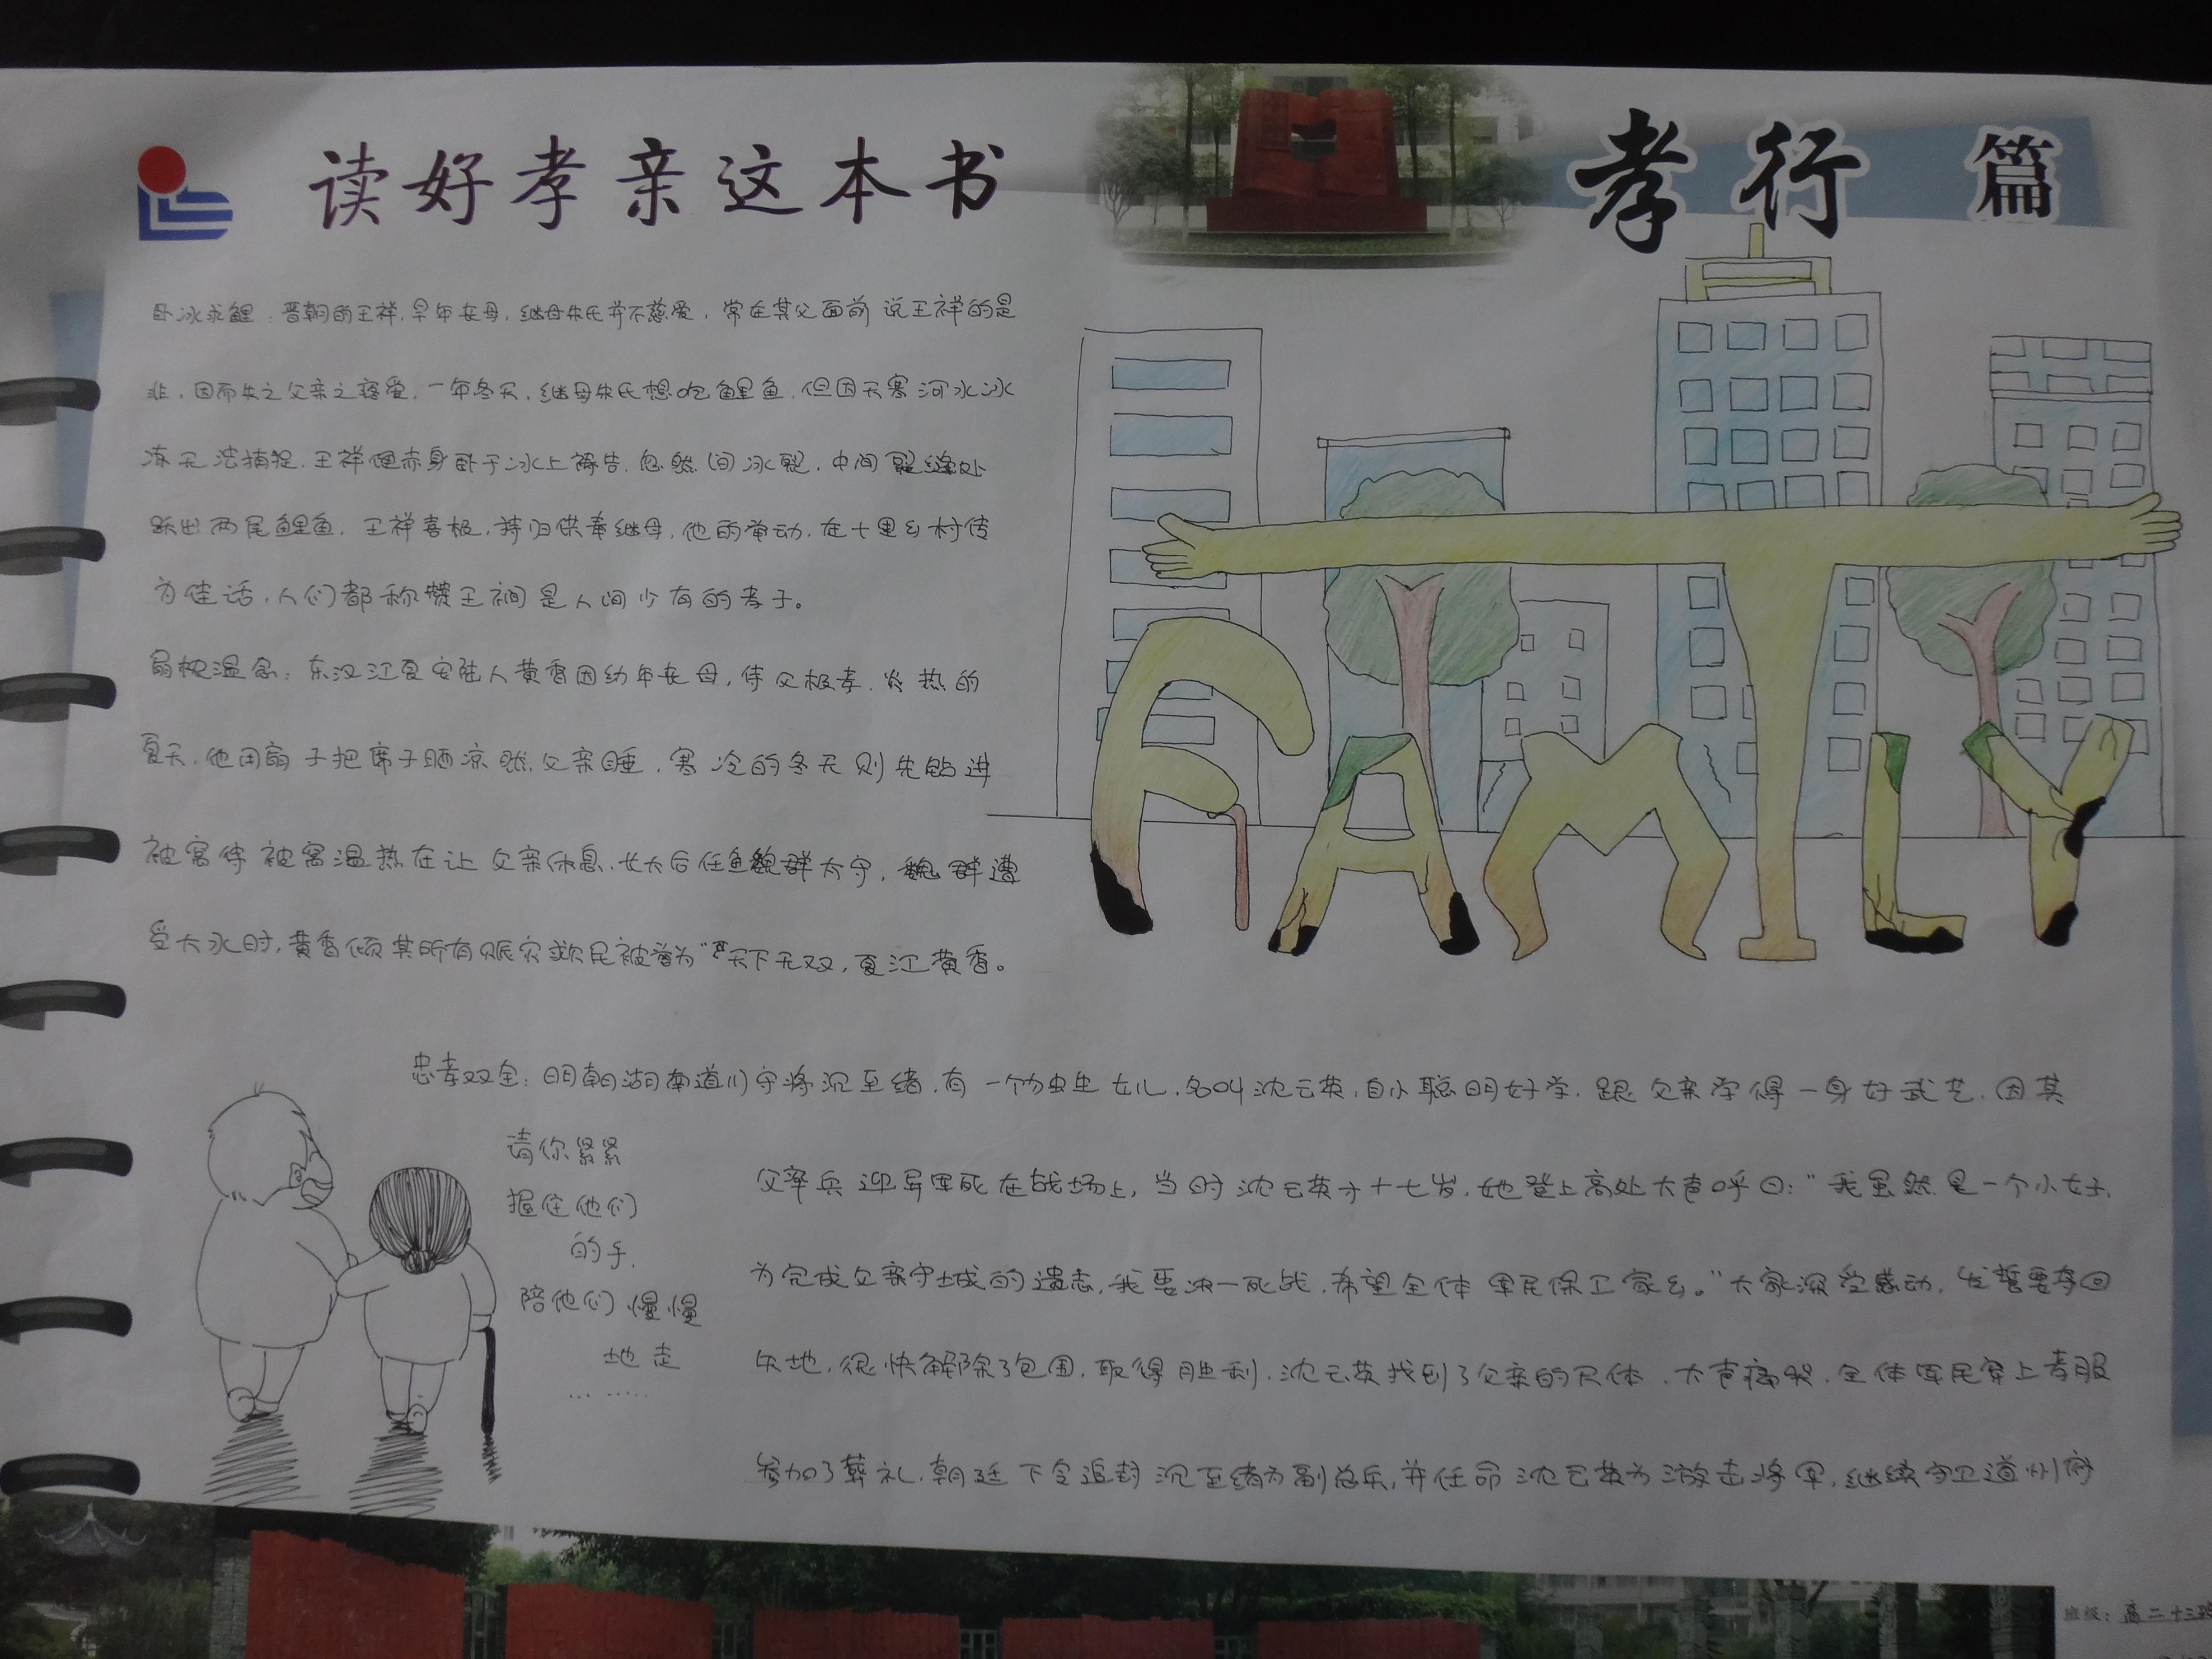 读好孝亲这本书
孝行 篇
卧冰求鲤：晋朝的王祥，早年丧母，继母朱氏并不慈爱，常在其父面前说王祥的是
非，因而失之父亲之疼爱，一年冬天，继母朱氏想吃鲤鱼，但因天寒河水冰
冻无法捕捉，王祥便赤身卧于冰上祷告，忽然间冰裂，中间裂缝处
跃出两尾鲤鱼，王祥喜极，持归供奉继母，他的举动，在十里乡村传
为佳话，人们都称赞王祥是人间少有的孝子。
扇枕温衾：东汉江夏安陆人黄香因幼年丧母，侍父极孝，炎热的
夏天，他用扇子把席子晒凉就父亲睡，寒冷的冬天则先钻进
被窝使被窝温热在让父亲休息，长大后任鱼魏群太守，魏群遭
受大水时，黄香倾其所有赈灾救民被誉为“天下无双，夏江黄香。
FAMILY
忠孝双全：明朝湖南道川守将沉至绪，有一个独生女儿，名叫沈云英，自小聪明好学，跟父亲学得一身好武艺，因其
父率兵迎异军死在战场上，当时沈云英才十七岁，她登上高处大声呼曰：“我虽然是一个小女子，
为完成父亲守城的遗志，我要决一死战，希望全体军民保卫家乡。”大家深受感动，发誓要夺回
失地，很快解除了包围，取得胜利，沈云英找到了父亲的尺体，大声痛哭，全体军民穿上孝服
参加了葬礼，朝廷下令追封沉至绪为副总兵，并任命沈云英为游击将军，继续守卫道州府
请你紧紧
握住他们
的手，
陪他们慢慢
地走
… ……
班级：高二十三班